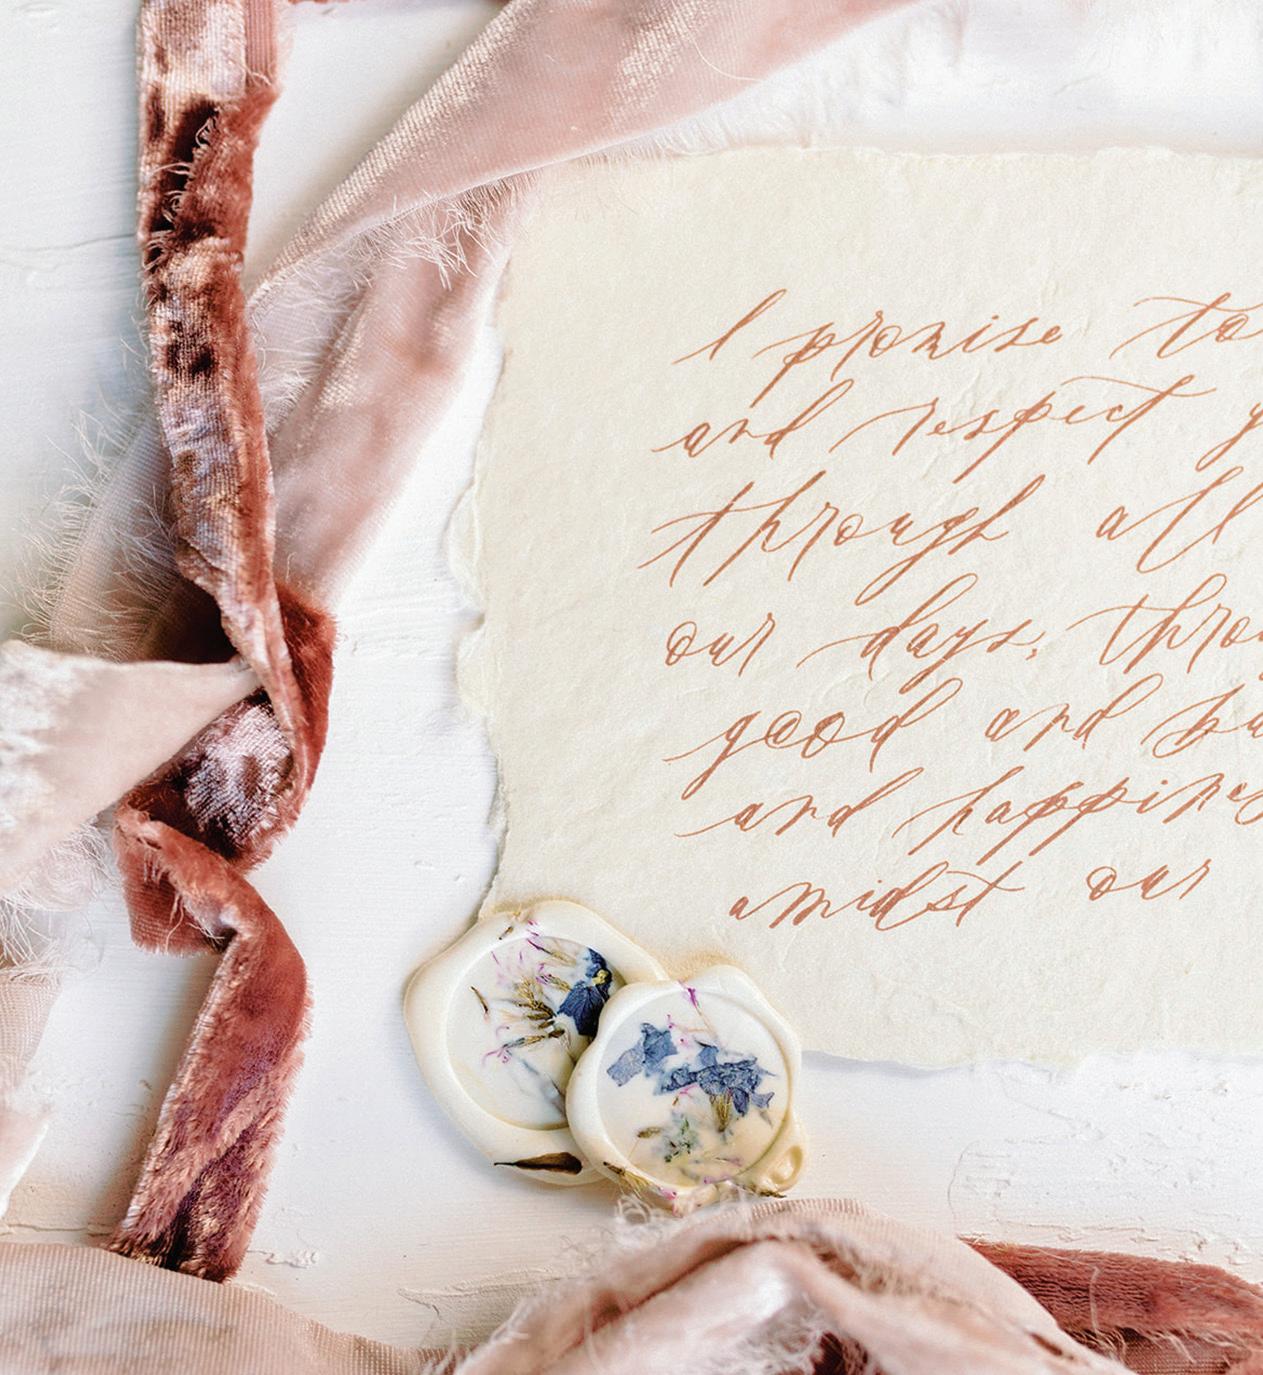 I promise to
and respect y
through all
our days, throu
good and ba
and happines
amidst our